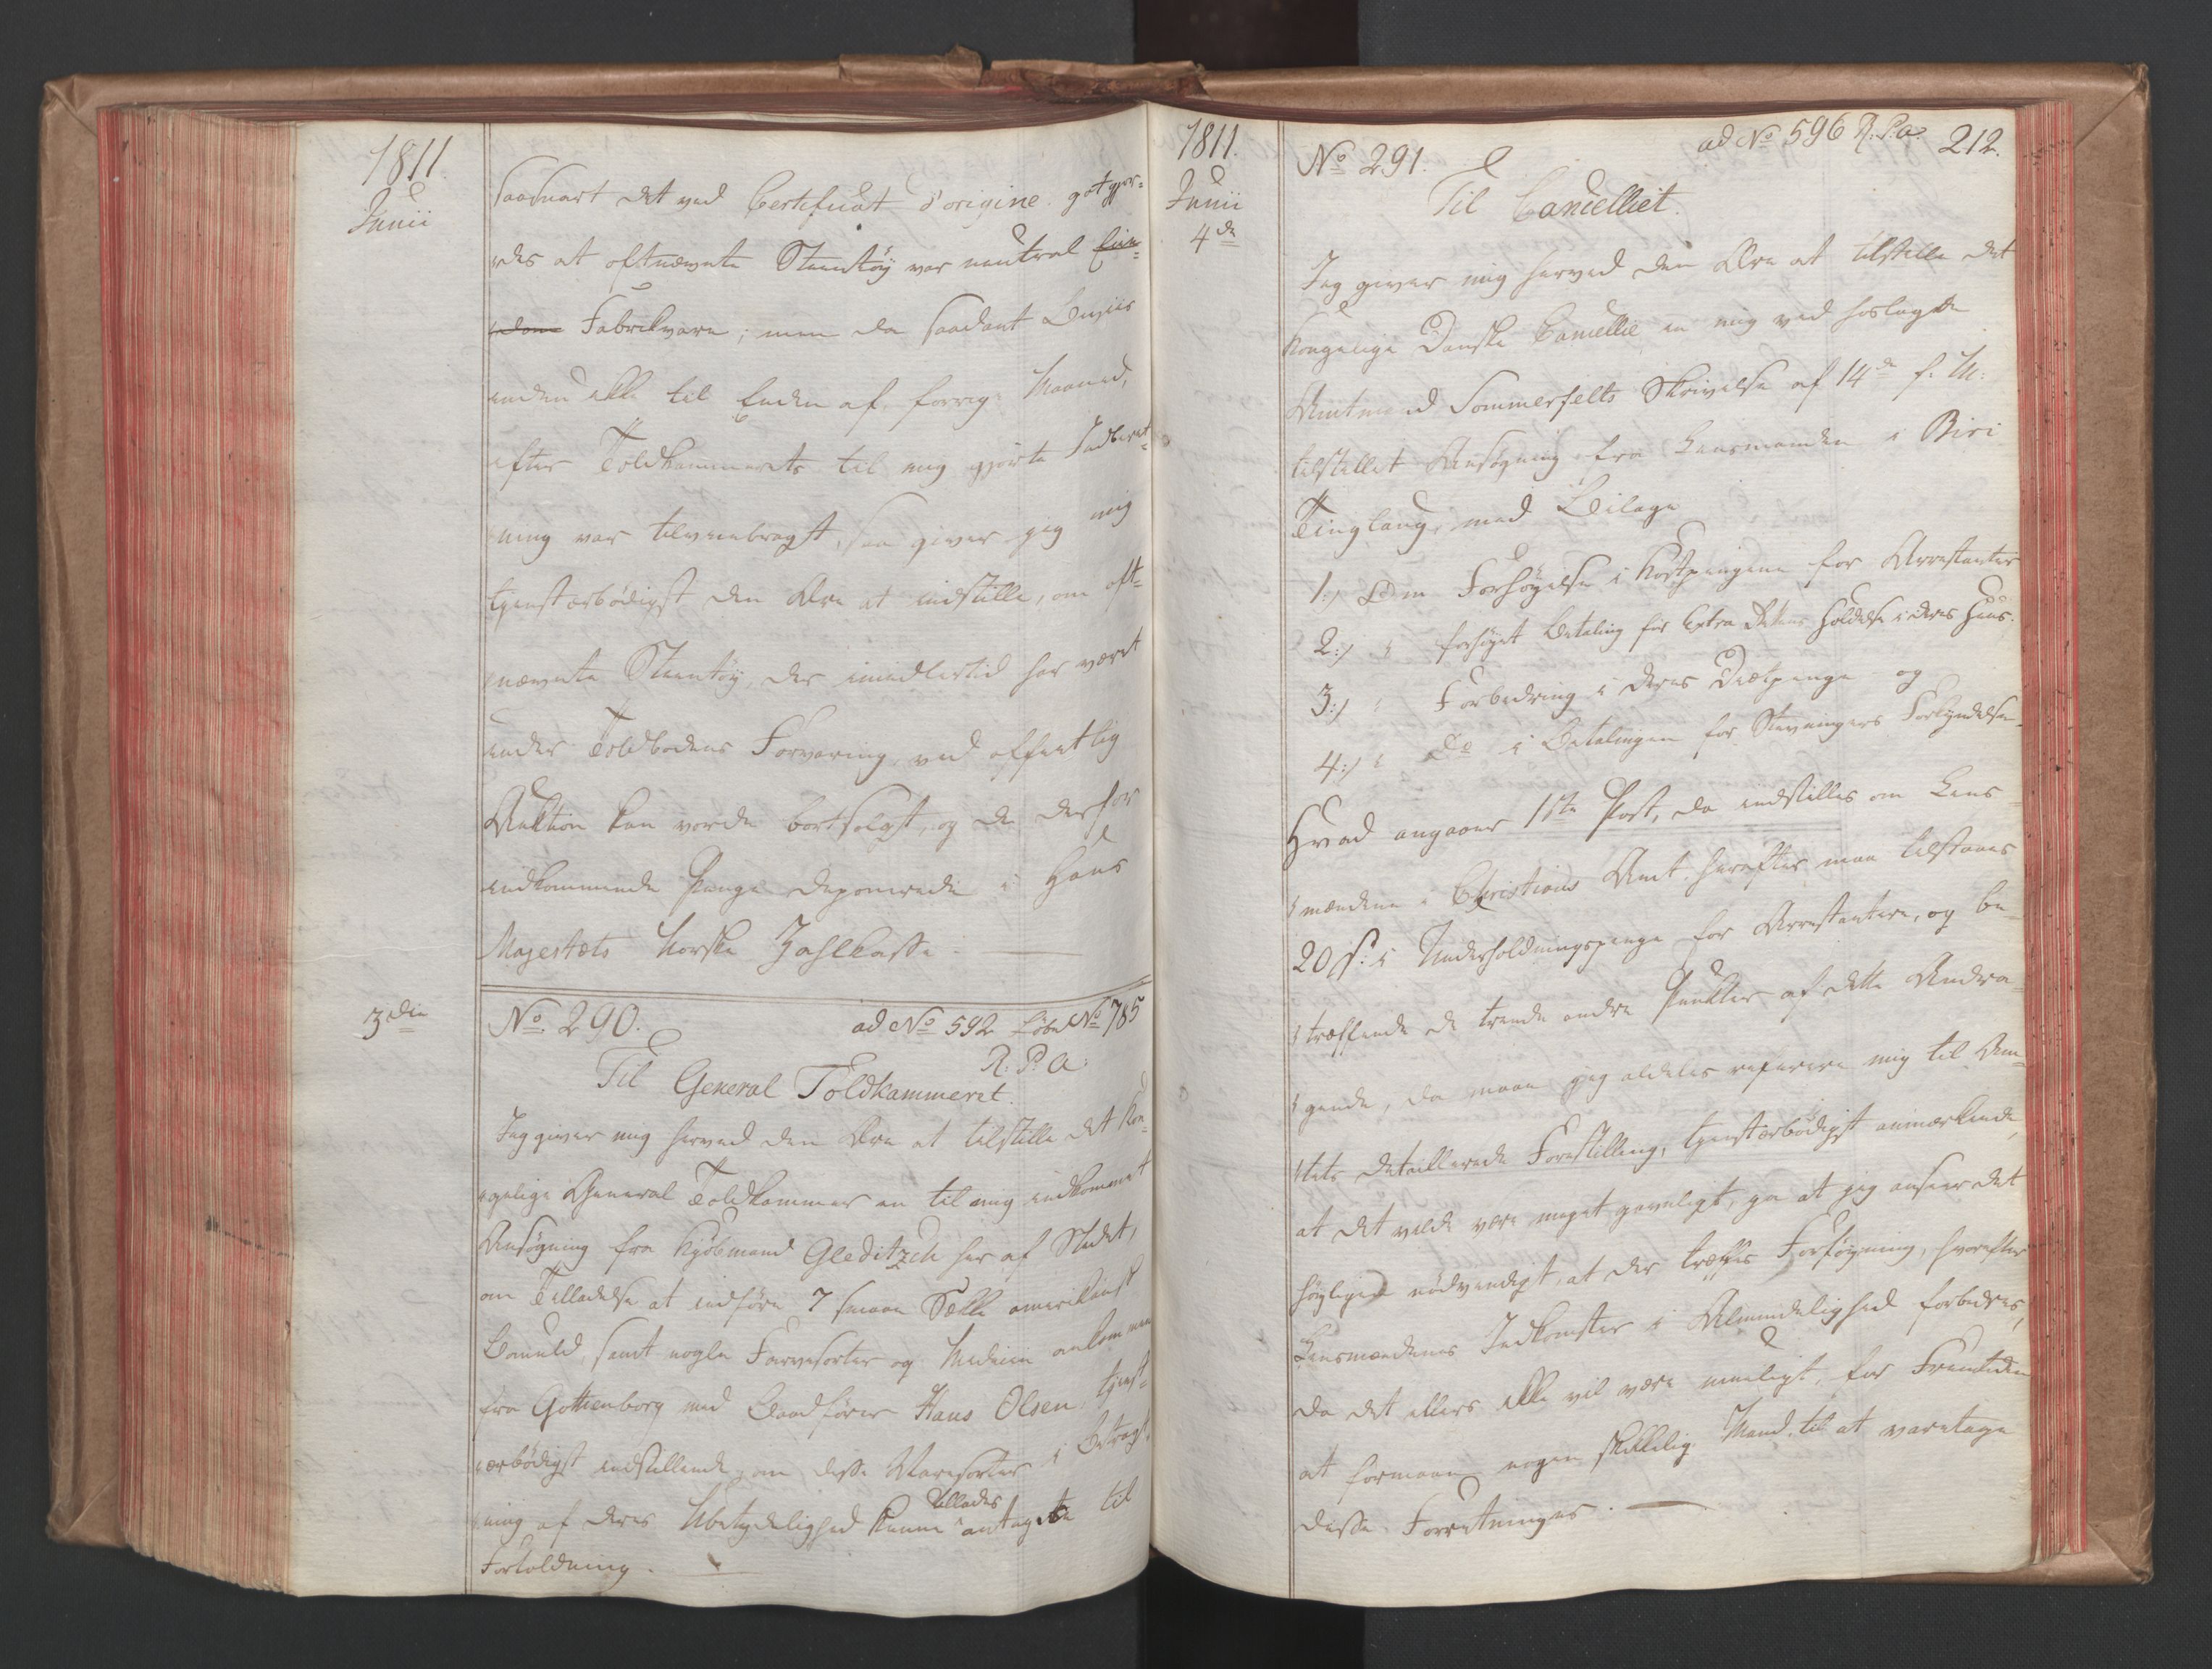 1811.
Junii
saasnart det ved Certificat d'origine godtgjør-
des at oftnævnte Steentøy var neutral Eien-
dom Fabrikvare; men da saadant Beviis
endnu ikke til Enden af forrige Maaned,
efter Toldkammerets til mig gjorte Indberet-
ning var tilveiebragt, saa giver jeg mig
tjenstærbødigst den Ære at indstille, om oft-
nævnte Steentøy, der imidlertid har været
under Toldbodens Forvaring, ved offentlig
Auktion kan vorde bortsolgt, og de derfor
indkommende Penge deponerede i Hans
Majestæts Norske Zahlkasse.
3die
No. 290. ad No 592 Løbe No 785
R. P. a.
Til General Toldkammeret.
Jeg giver mig herved den Ære at tilstille det Kon-
gelige General Toldkammer en til mig indkommet
Ansøgning fra Kjøbmand Gleditzch her af Stedet,
om Tilladelse at indføre 7 smaae Sække amerikansk
Bomuld, samt nogle Farvesorter og Medicin ankommen
fra Gottenborg med Baadfører Hans Olsen, tjenst-
ærbødigst indstillende, om disse Varesorter i Betragt-
ning af deres Ubetydelighed kunne tillades antagne til
Fortoldning.
1811.
Junii
4de
No 291. ad No 596 R. P. a. 212.
Til Cancelliet.
Jeg giver mig herved den Ære at tilstille det
Kongelige Danske Cancellie en mig ved hoslagde
Amtmand Sommerfelts Skrivelse af 14de f. M.
tilstillet Ansøgning fra Lensmanden i Biri
Tinglaug, med Bilage
1:) Om Forhøyelse i Kostpengene for Arrestanter
2:) " forhøyet Betaling for Extra Vagtens Holdelse i deres Huus.
3:) " Forbedring i deres Diætpenge og
4:) " Do i Betalingen for Stevningers Forkyndelse.
Hvad angaaer 1ste Post, da indstilles om Lens-
mændene i Christians Amt herefter maa tilstaaes
20 s. i Underholdningspenge for Arrestantere, og be-
træffende de trende andre Punkter af dette Andra-
gende, da maae jeg aldeles referere mig til Am-
tets detaillerede Forestilling, tjenstærbødigst anmærkende,
at det vilde være meget gavnligt, ja at jeg ansaaer det
høyligen nødvendigt, at der træffes Forføyning, hvorefter
Lensmændenes Indkomster i Almindelighed forbedres,
da det ellers ikke vil være mueligt, for Fremtiden
at formaae nogen skikkelig Mand til at varetage
disse Forretninger.